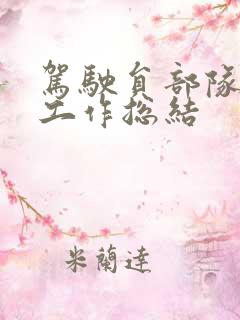 駕駛員部隊
工作總結
米蘭達